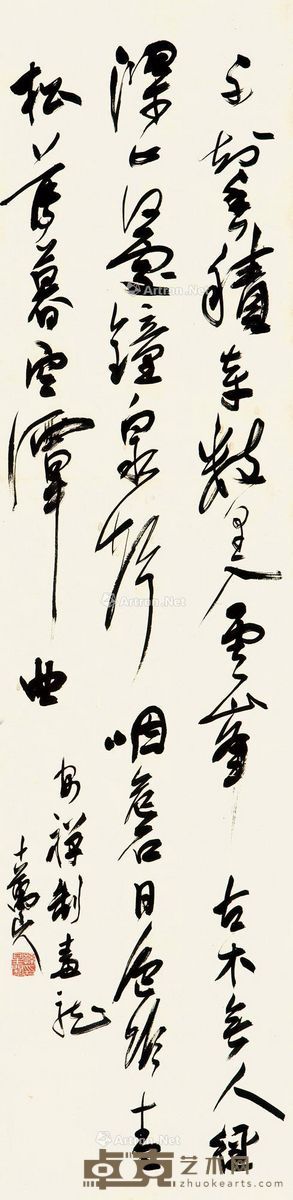 不知香積寺數里入雲峰古木無人徑
深山何處鐘泉聲咽危石日色冷青
松薄暮空潭曲
安禪制毒龍
十萬山人
Artron.Net
Artron.Net
Artron.Net
卓克艺术网
www.zhuokearts.com